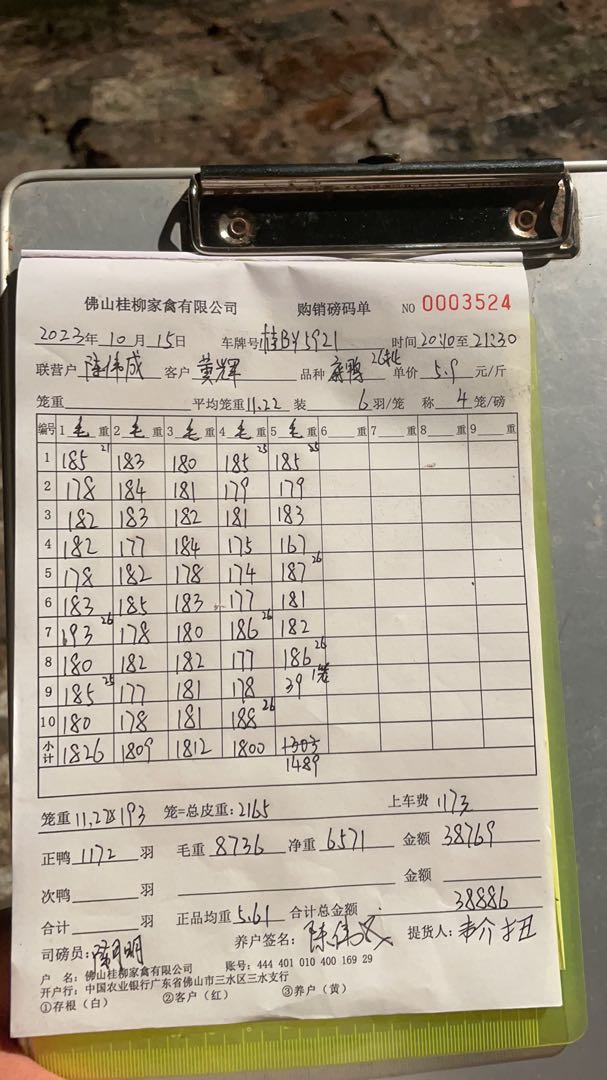 佛山桂柳家禽有限公司 购销磅码单 NO 0003524
2023年 10月 15日 车牌号 桂BY5921 时间 20:40至21:30
联营户 陈伟成 客户 黄辉 品种 麻鸭 26批 单价 5.9 元/斤
笼重 平均笼重 11.22 装 6 羽/笼 称 4 笼/磅
编号 1 毛 重 2 毛 重 3 毛 重 4 毛 重 5 毛 重 6 重 7 重 8 重 9 重
1 185 21 183 180 185 25 185 25
2 178 184 181 179 179
3 182 183 182 181 183
4 182 177 184 175 167
5 178 182 178 174 187 26
6 183 185 183 177 181
7 193 26 178 180 186 26 182
8 180 182 182 177 186 26
9 185 25 177 181 178 39 1笼
10 180 178 181 188 26
小计 1826 1809 1812 1800 1303
1489
笼重 11.22x193 笼=总皮重: 2165 上车费 1173
正鸭 1172 羽 毛重 8736 净重 6571 金额 38769
次鸭 羽 金额
38886
合计 羽 正品均重 5.61 合计总金额
司磅员: 养户签名: 陈伟成 提货人:
户 名: 佛山桂柳家禽有限公司 账号: 444 401 010 400 169 29
开户行: 中国农业银行广东省佛山市三水区三水支行
①存根（白） ②客户（红） ③养户（黄）